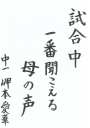 試合中
一番聞こえる
母の声
中一 岬本愛華